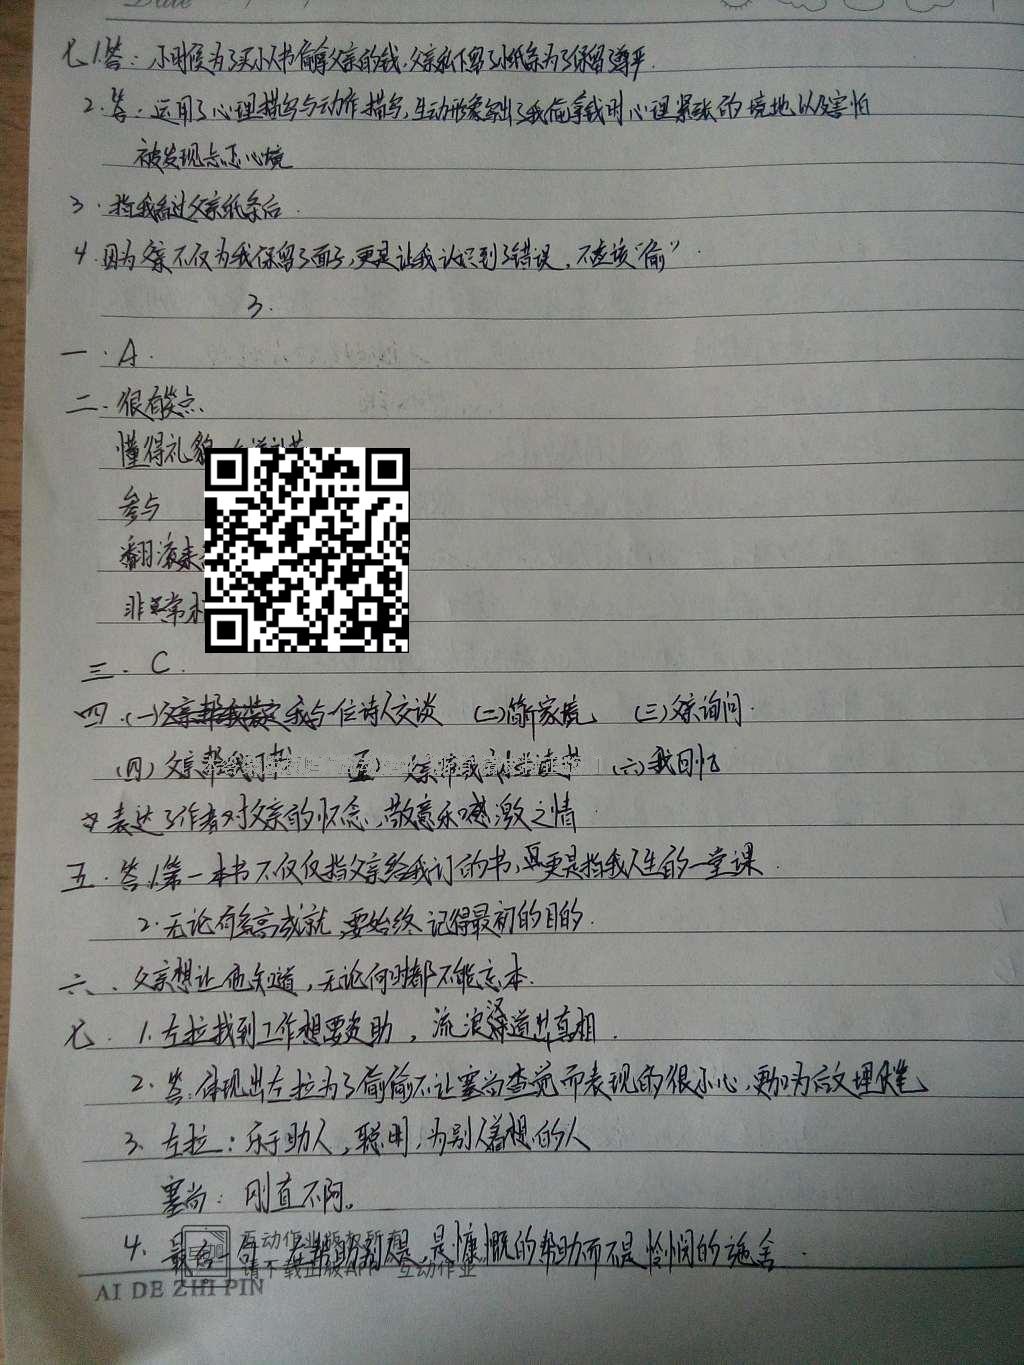 Date
七 1.答：小时候为了买小人书偷拿父亲的钱，父亲私下留了小纸条为了保留了尊严.
2.答：运用了心理描写与动作描写，生动形象写出了我偷拿钱时心理紧张的境地以及害怕
被发现的心境
3.指我看过父亲纸条后.
4.因为父亲不仅为我保留了面子，更是让我认识到了错误，不应该“偷”.
3.
一.A.
二.很有笑点
懂得礼貌
参与
翻滚
非常
三.C.
四.(一) 我与一位诗人交谈 (二)简介家境 (三)父亲询问.
(四)父亲帮我订书 五 父亲 (六)我回忆
表达了作者对父亲的怀念，敬意和感激之情
五.答1.第一本书不仅仅指父亲给我订的书，更是指我人生的一堂课.
2.无论有多高成就，要始终记得最初的目的.
六.父亲想让他知道，无论何时都不能忘本.
七.1.左拉找到工作想要资助，流浪 道出真相.
2.答：体现出左拉为了偷偷不让塞尚查觉而表现的很小心，更加为后文埋伏笔
3.左拉：乐于助人，聪明，为别人着想的人
塞尚：刚直不阿。
4.最后一句 是慷慨的帮助而不是怜悯的施舍.
互动作业版权所有
请下载正版APP 互动作业
AI DE ZHI PIN